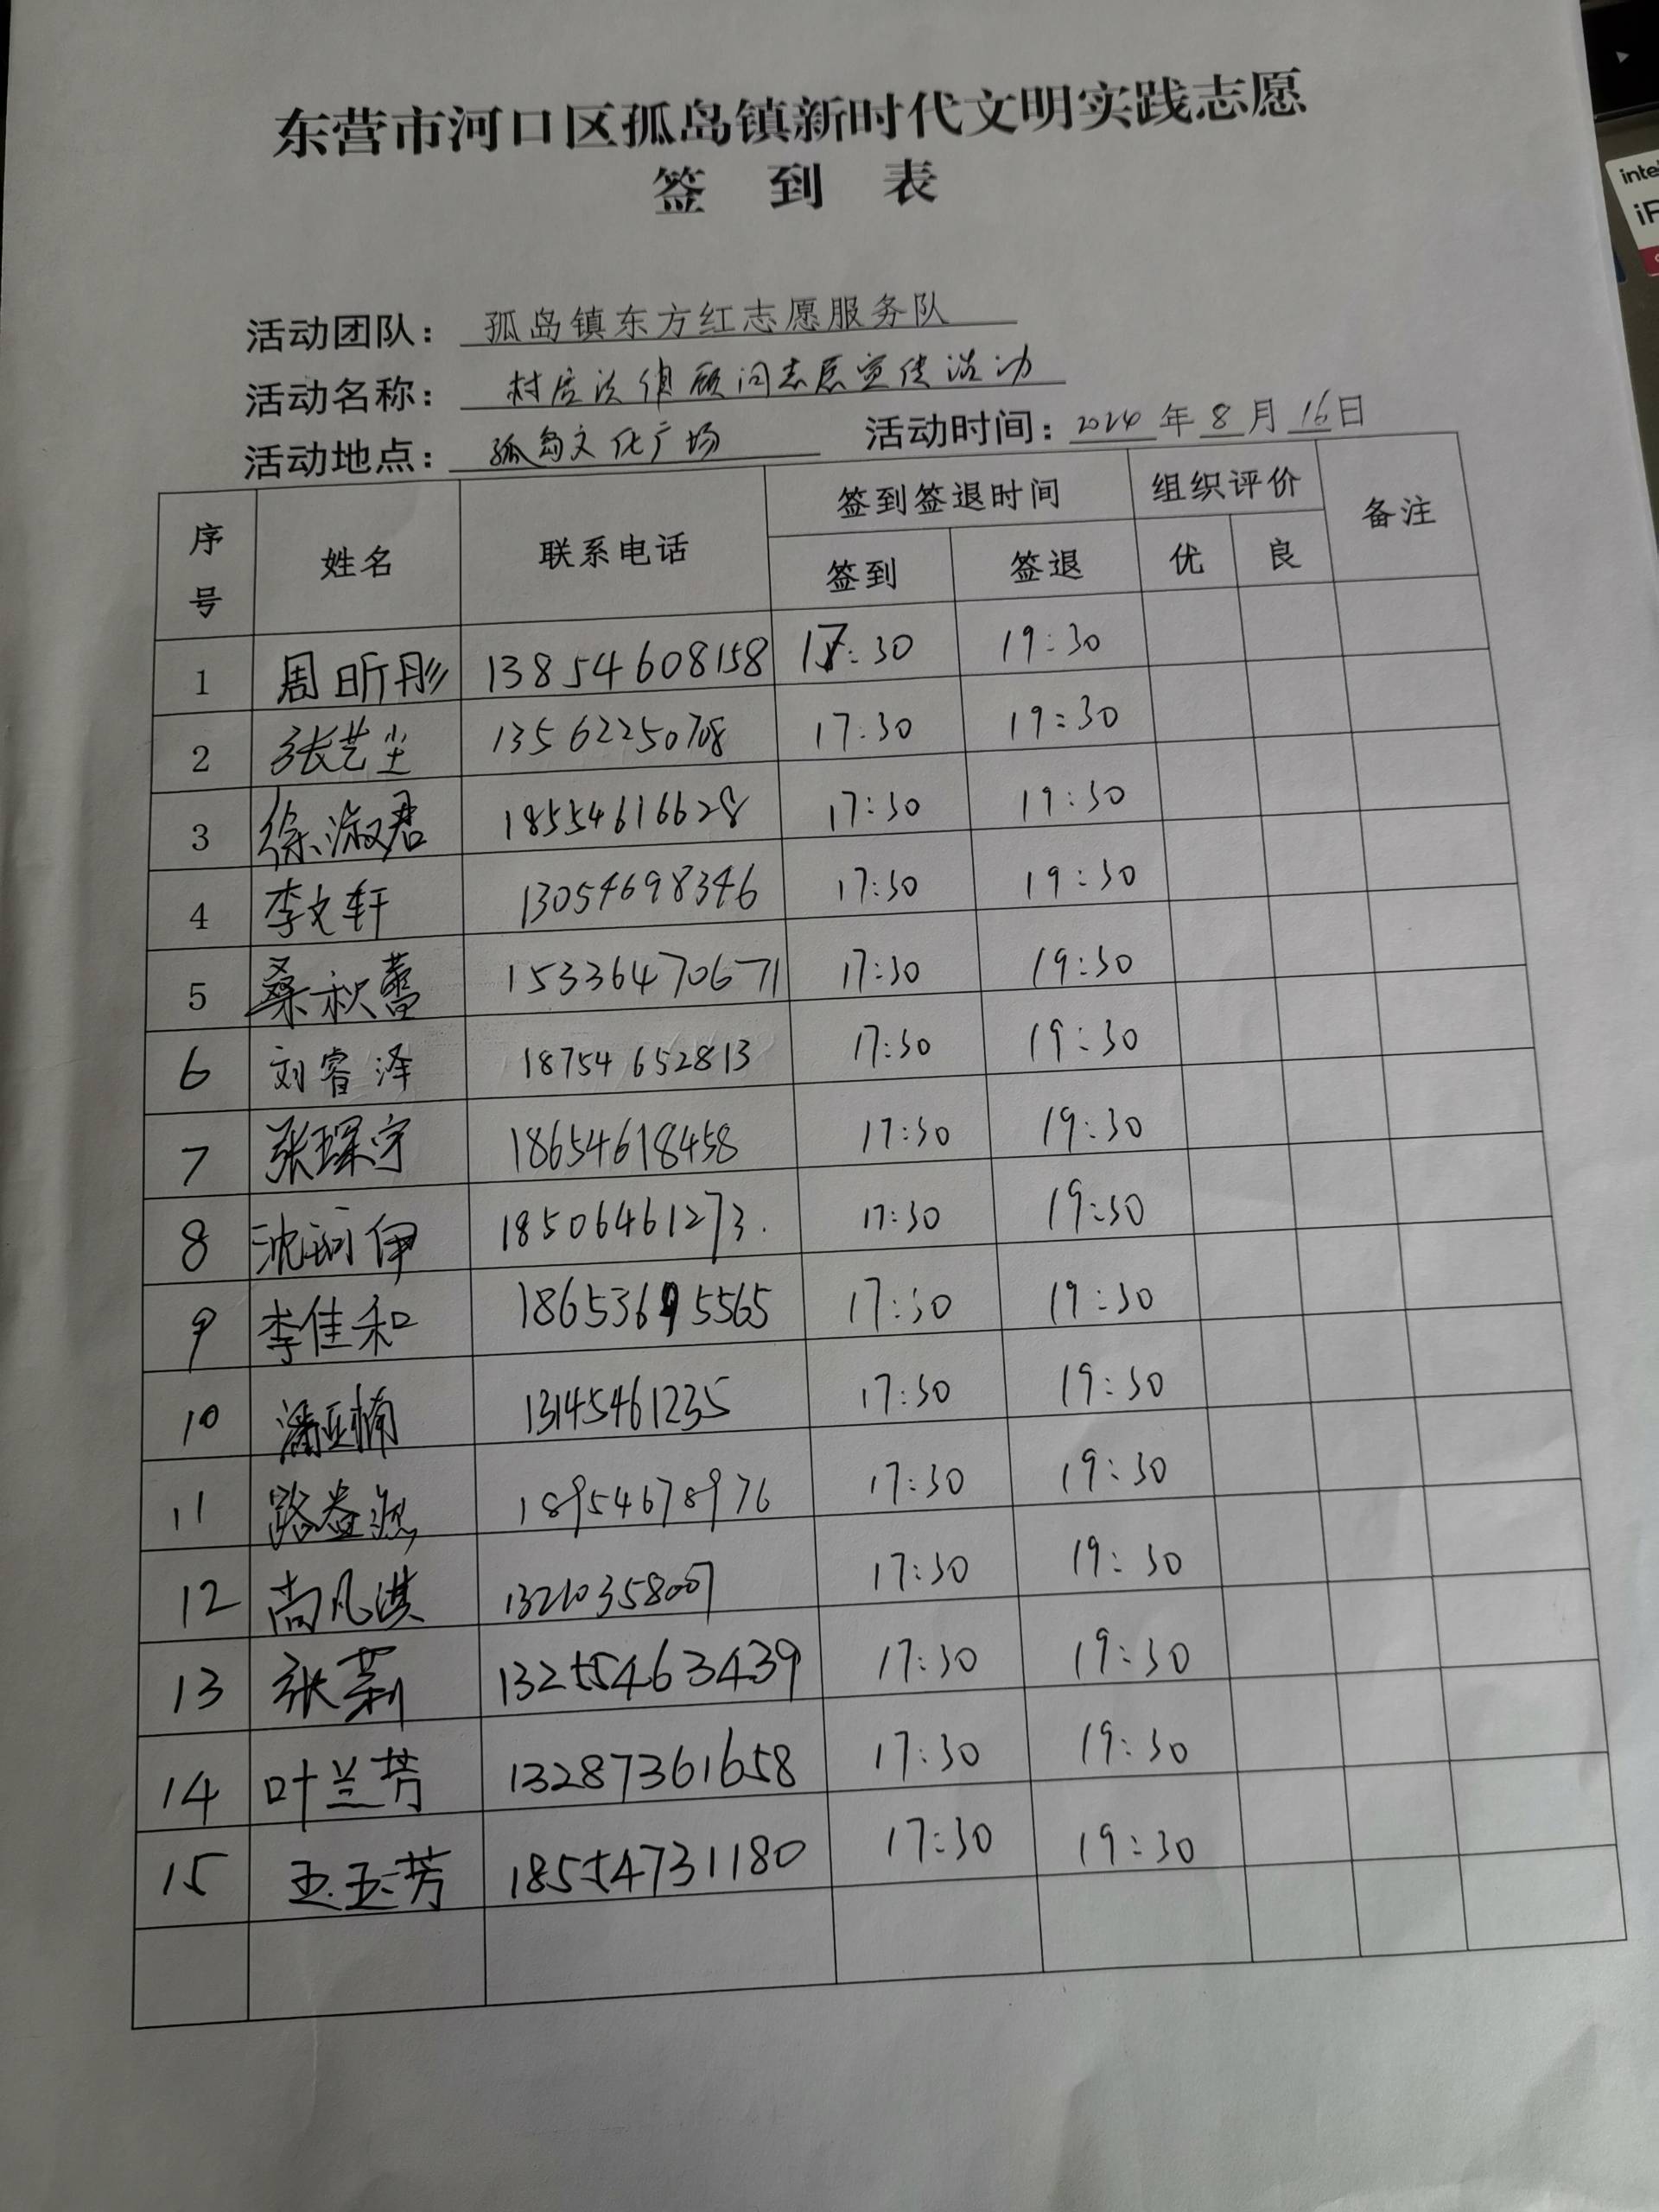 东营市河口区孤岛镇新时代文明实践志愿
签 到 表
活动团队：孤岛镇东方红志愿服务队
活动名称：村居法律顾问志愿宣传活动
活动地点：孤岛文化广场 活动时间：2024年8月16日
序号 姓名 联系电话 签到签退时间 组织评价 备注
签到 签退 优 良
1 周昕彤 13854608158 17:30 19:30
2 张艺尘 13562250708 17:30 19:30
3 徐淑君 18554616628 17:30 19:30
4 李文轩 13054698346 17:30 19:30
5 桑秋蕾 15336470671 17:30 19:30
6 刘睿泽 18754652813 17:30 19:30
7 张琛宇 18654618458 17:30 19:30
8 沈珂伊 18506461273. 17:30 19:30
9 李佳和 18653695565 17:30 19:30
10 潘亚楠 13145461235 17:30 19:30
11 路 18954678976 17:30 19:30
12 尚凡淇 13210358007 17:30 19:30
13 张莉 13255463439 17:30 19:30
14 叶兰芳 13287361658 17:30 19:30
15 王玉芳 18554731180 17:30 19:30
intel